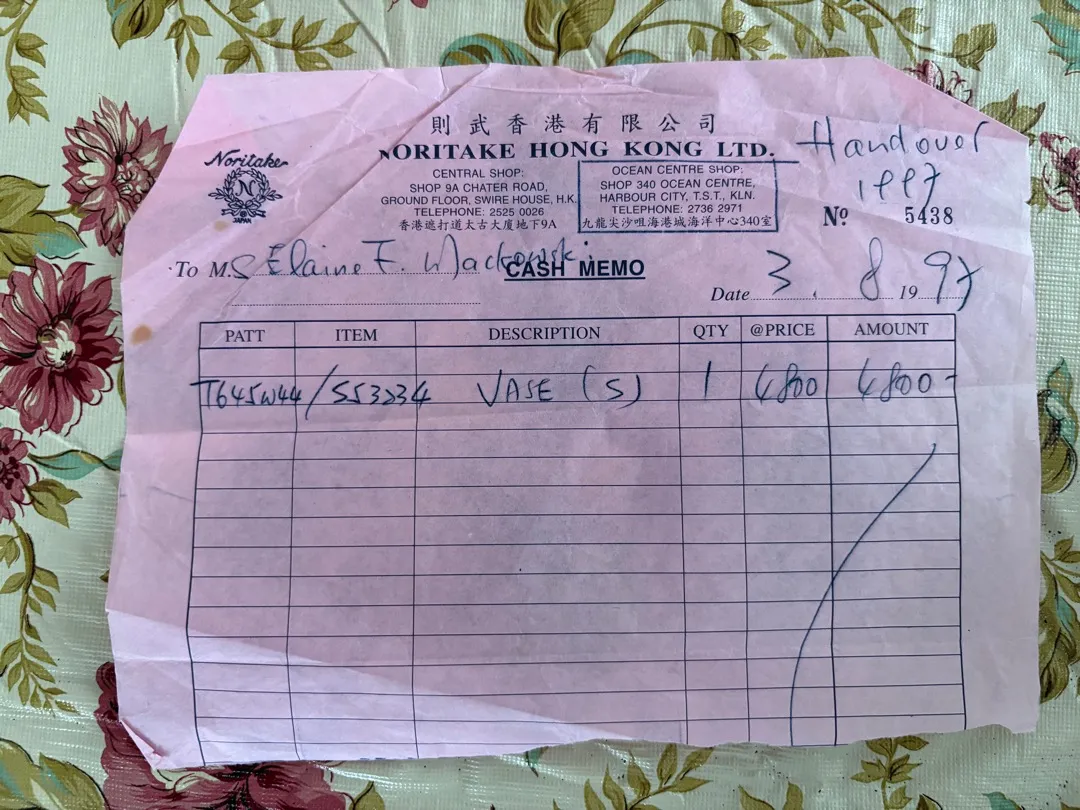 則武香港有限公司
NORITAKE HONG KONG LTD.
Handover
1997
Noritake
N
JAPAN
CENTRAL SHOP:
SHOP 9A CHATER ROAD,
GROUND FLOOR, SWIRE HOUSE, H.K.
TELEPHONE: 2525 0026
香港遮打道太古大廈地下9A
OCEAN CENTRE SHOP:
SHOP 340 OCEAN CENTRE,
HARBOUR CITY, T.S.T., KLN.
TELEPHONE: 2736 2971
九龍尖沙咀海港城海洋中心340室
Nº 5438
To M.S Elaine F. Mackowski
CASH MEMO
Date 3. 8 1997
PATT ITEM DESCRIPTION QTY @PRICE AMOUNT
T645W44/553234 VASE (S) 1 4800 4800-